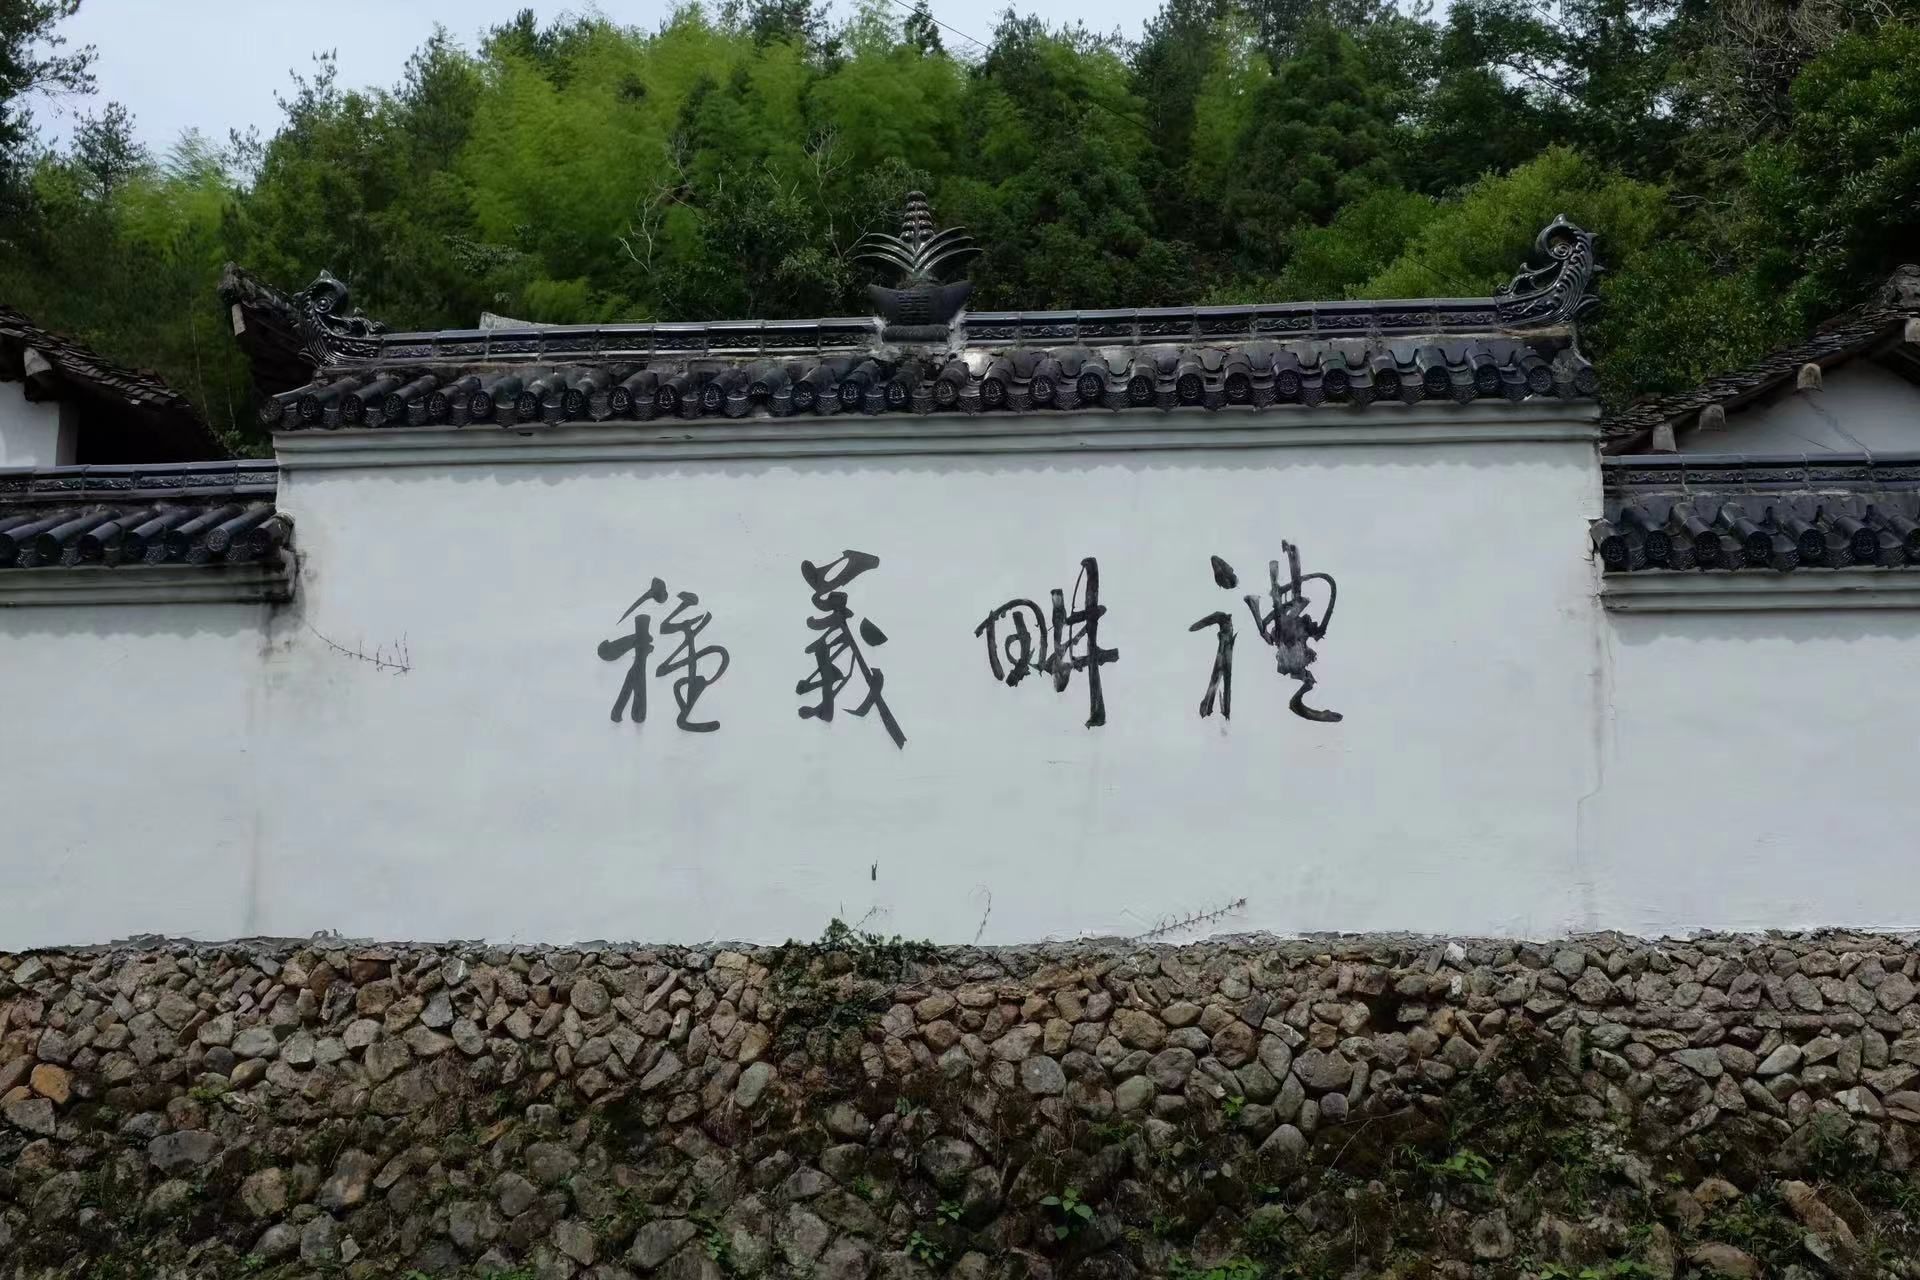 禮畊義種